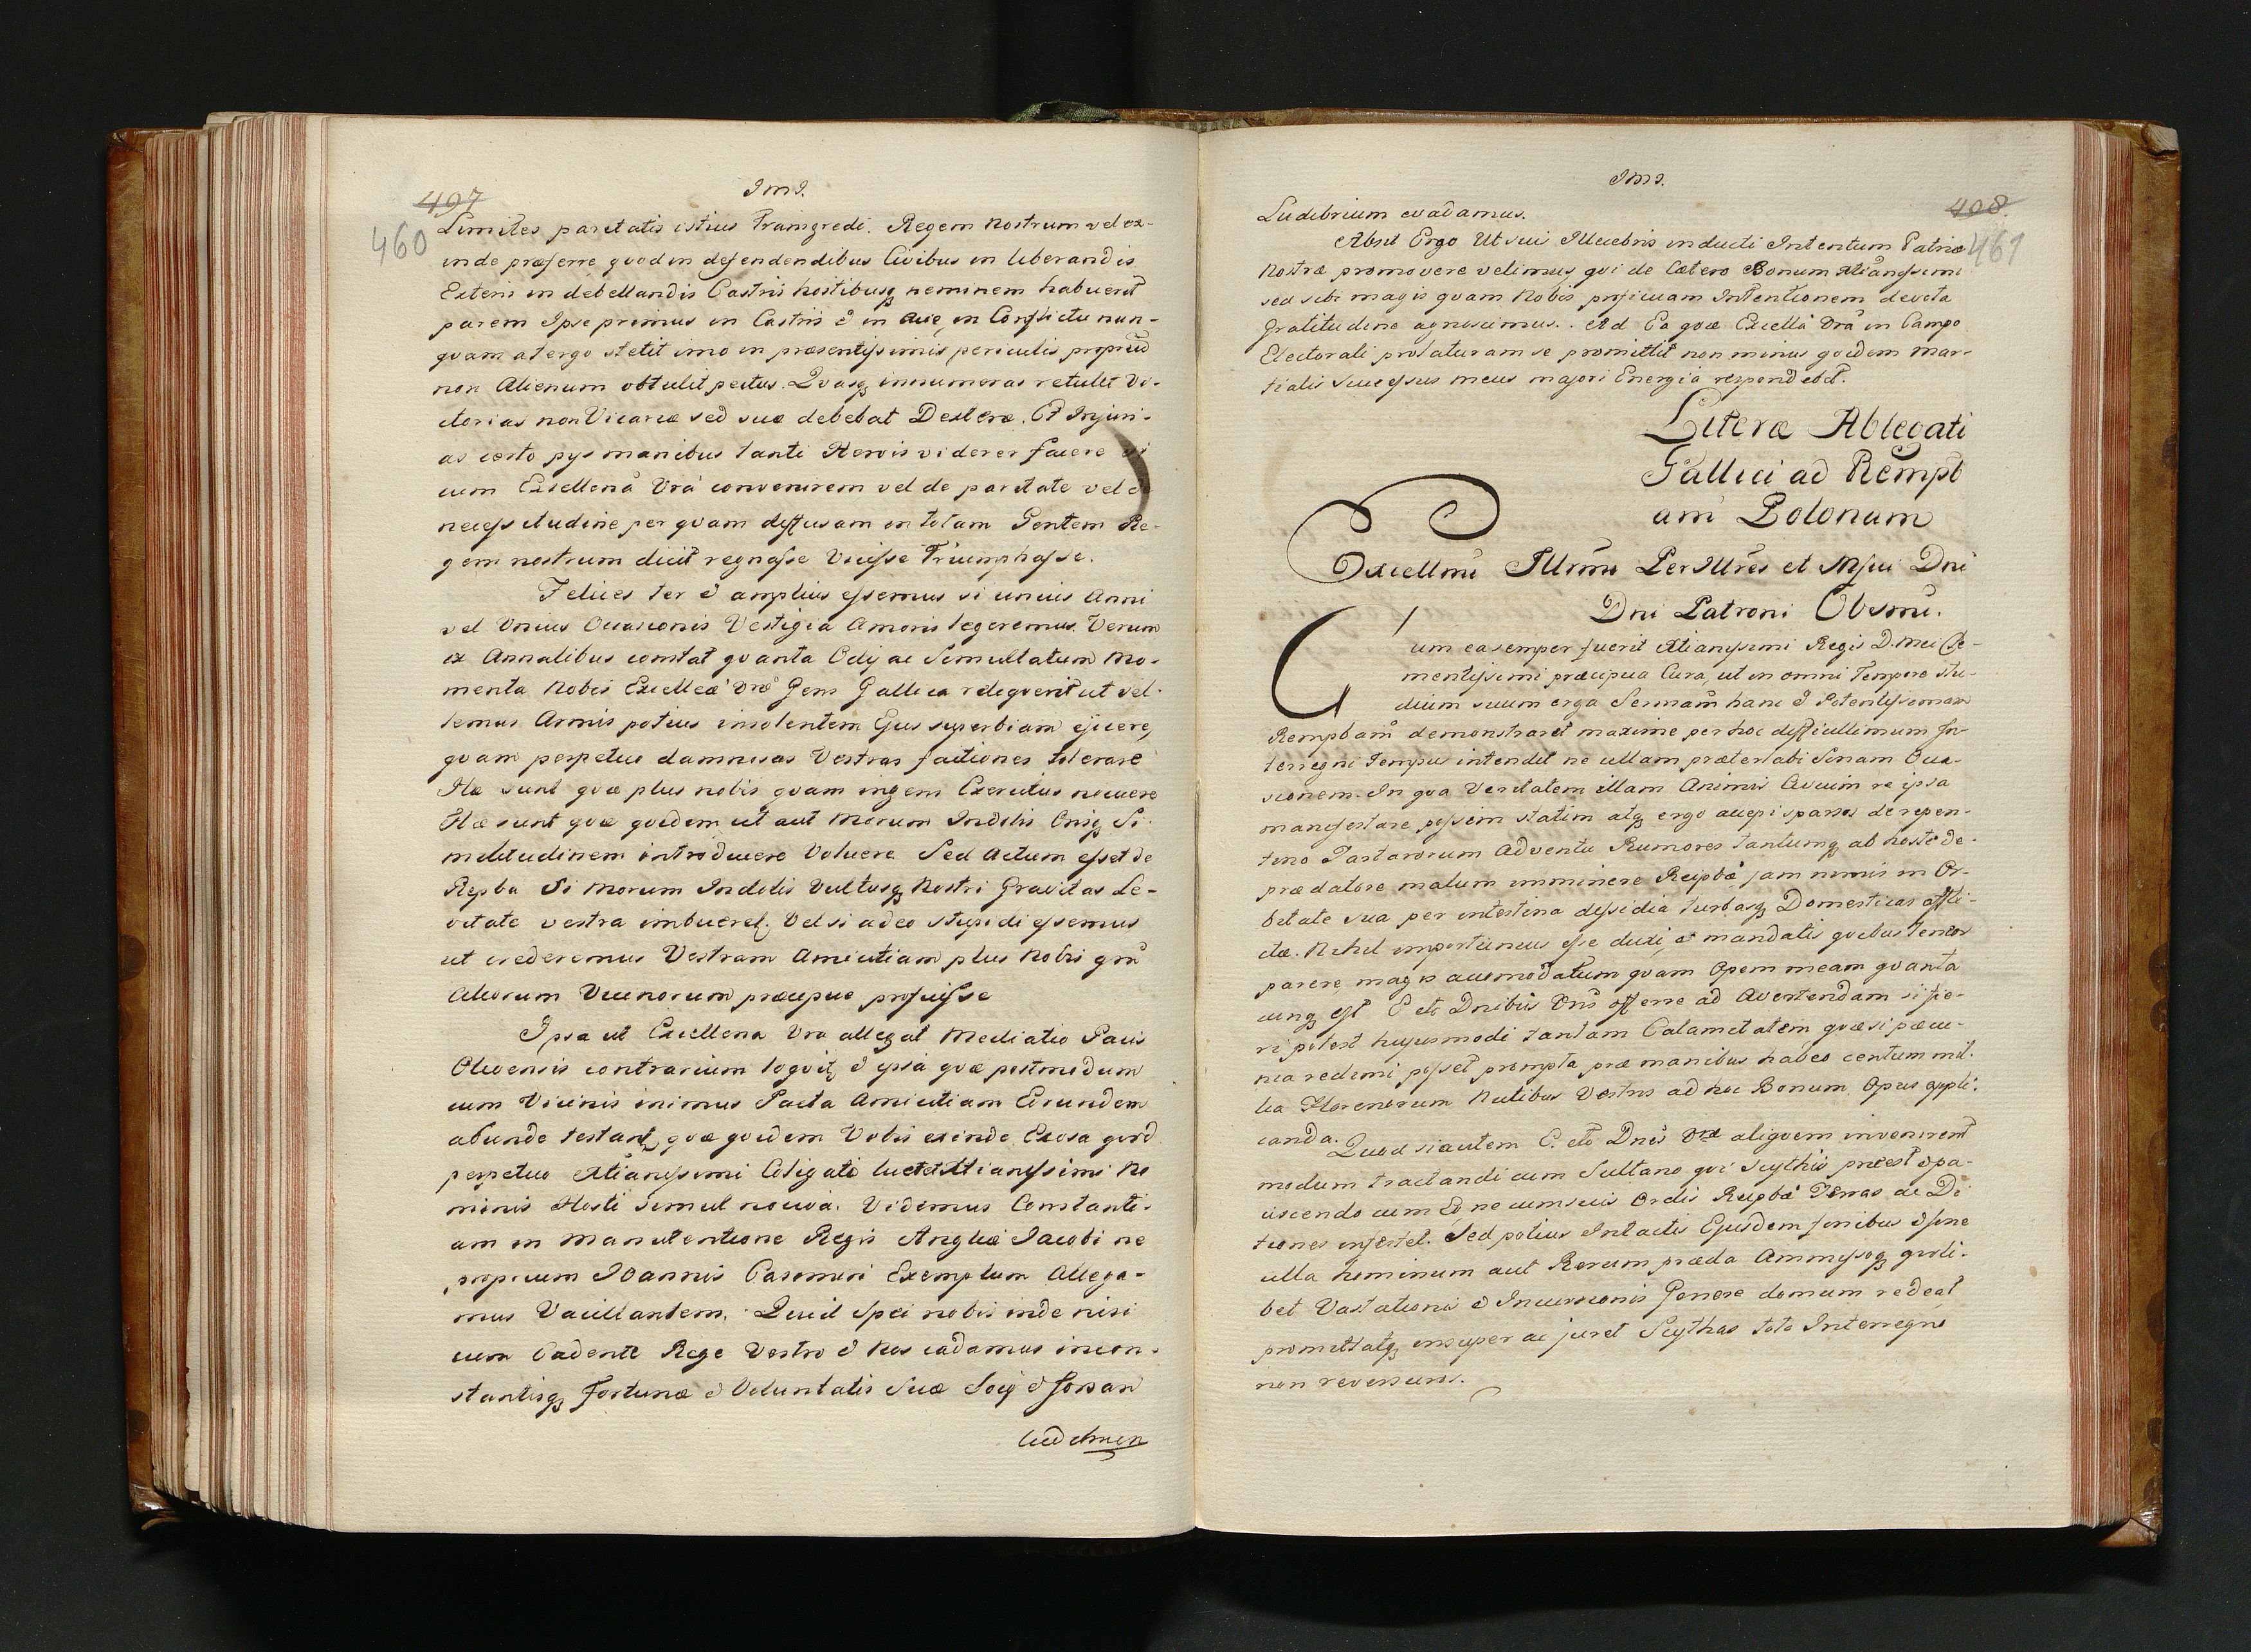 497
460
I m I.
Limites paritatis istius Transgredi. Regem nostrum vel ex-
inde præferre, qvod in defendendibus Civibus in liberandis
Exteris in debellandis Castris hostibusq neminem habuerit
parem Ipse primus in Castris & in Acie, in Conflictu nun-
qvam a tergo stetit imo in præsentissimis periculis propriũ
non Alienum obtulit pectus. Qvasq innumeras retulit Vi-
ctorias non Vicareæ sed suæ debebat Dexteræ. Et Injuri-
as certo pys manibus tanti Herois viderer facere si
cum Excellena Vra convenirem vel de paritate vel de
necessitudine per qvam diffusam in totam Gentem Re-
gem nostrum dicit regnasse Vicisse Triumphasse.
Felices ter & amplius essemus si unius Anni
vel Unius Occasionis Vestigia Amoris legeremus. Verum
ex Annalibus constat qvanta Odij ac Simultatum Mo-
menta Nobis Excelleæ Vræ Gens Gallica reliqverit ut vel-
lemus Armis potius insolentem Ejus superbiam ejicere,
qvam perpetuo damnosas Vestras factiones tolerare
Hæ sunt qvæ plus nobis qvam ingens Exercitus nocuere
Hæ sunt qvæ qvidem ut aut Morum Indolis Orisq Si-
militudinem introducere Voluere. Sed Actum esset de
Repba Si Morum Indolis Vultusq Nostri Gravitas Le-
vitate vestra imbueret. Vel si adeo stupidi essemus
ut crederemus Vestram Amicitiam plus Nobis qm
Aliorum Vicinorum præcipue profuisse
Ipsa ut Excellena Vra allegat Mediatio Pacis
Olivensis contrarium loqvit, & ipsa qvæ postmodum
cum Vicinis inimus Pacta Amicitiam Eorundem
abunde testant, qvæ qvidem Vobis exinde Exosa qvod
perpetuo Xtianissimi Coligati Xtianissimi No
minis Hosti Simul nociva. Videmus Constanti-
am in Manutentione Regis Angliæ Jacobi ne
propicum Joannis Casimiri Exemplum Allega-
mus Vacillantem. Qvid Spei nobis inde nisi
cum Cadente Rege Vestro & Nos cadamus incon-
stantisq fortunæ & Voluntatis Suæ Socij & forsan
I m I.
408.
461
Ludibrium evadamus.
Absit Ergo Ut sui Illecebris inducti Intentum Patriæ
Nostræ promovere velimus, qvi de Cætero Bonum Xtianissimi
sed sibi magis qvam Nobis proficuam Intentionem devota
Gratitudine agnoscimus. Ad Ea qvæ Excella Vra in Campo
Electorali prolaturam se promittit non minus qvidem Mar-
tialis Successus meus majori Energia respondebit.
Literæ Ablegati
Gallici ad Rempb
am Polonam
Excellmi Illrmi Per Illres et Mfici Dni
Dni Patroni Obsmi.
Cum ea semper fuerit Xtianissimi Regis D. Mei Cle-
mentissimi præcipua Cura, ut in omni Tempore Stu-
dium suum erga Sermam hanc & Potentissimam
Rempbam demonstraret maxime per hoc difficillimum In-
terregni Tempus intendit ne ullam præterlabi Sinam Occa-
sionem. In qva Veritatem illam Animis Civium re ipsa
manifestare possim statim atq ergo accepi sparsos de repen-
tino Tartarorum Adventu Rumores tantumq ab hoste de-
prædatore malum imminere Reipbæ jam nimis in Or-
bitate sua per intestina dissidia turbasq Domesticas affli-
ctæ. Nihil importunius esse duxi, & mandatis qvibus teneor
parere, magis accomodatum qvam Opem meam qvanta
cunq est E et Dnibus Vris offerre ad Avertendam si fie-
ri potest hujusmodi tantam Calamitatem, qvæ si pecu-
nia redimi posset prompta præ manibus habeo centum mil-
lia Florenorum Nutibus Vestris ad hoc Bonum Opus appli-
canda.
Qvod si autem E. et Dnes Vræ aliqvem invenirent
modum tractandi cum Sultano qvi Scythis præest & pa-
ciscendo cum Eo ne cum suis Ordis Reipbæ Terras ac Di
tiones infestet. Sed potius Intactis Ejusdem finibus & sine
ulla hominum aut Rerum præda Ammissoq qvoli-
bet Vastationis & Incursionis Genere domum redeat
promittatq insuper ac juret Scythas toto Interregno
non reversuros.